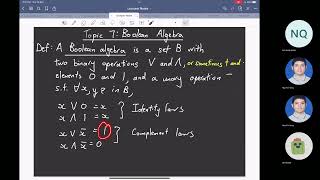 Lecturer Notes
Topic 7: Boolean Algebra
Def: A Boolean algebra is a set B with
two binary operations ∨ and ∧, or sometimes + and ·
elements 0 and 1, and a unary operation ‾
s.t. ∀x, y, z in B,
x ∨ 0 = x
x ∧ 1 = x
} Identity laws
x ∨ x̄ = 1
x ∧ x̄ = 0
} Complement laws
NQ